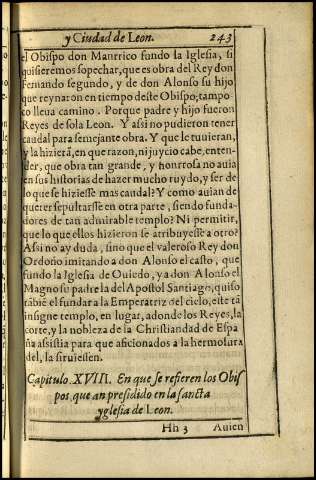 y Ciudad de Leon. 243
el Obispo don Manrrico fundo la Iglesia, si
quisieremos sopechar, que es obra del Rey don
Fernando segundo, y de don Alonso su hijo
que reynaron en tiempo deste Obispo, tampo
co lleua camino. Porque padre y hijo fueron
Reyes de sola Leon. Y assi no pudieron tener
caudal para semejante obra. Y que le tuuieran,
y la hizierã, en que razon, ni juycio cabe, enten-
der, que obra tan grande, y honrrosa no auia
en sus historias de hazer mucho ruydo, y ser de
lo que se hiziesse mas caudal? Y como auian de
querer sepultarsse en otra parte, siendo funda-
dores de tan admirable templo? Ni permitir,
que lo que ellos hizieron se atribuyesse a otro?
Assi no ay duda, sino que el valeroso Rey don
Ordoño imitando a don Alonso el casto, que
fundo la Iglesia de Ouiedo, y a don Alonso el
Magno su padre la del Apostol Santiago, quiso
tãbiẽ el fundar a la Emperatriz del cielo, este tã
insigne templo, en lugar, adonde los Reyes, la
corte, y la nobleza de la Christiandad de Espa
ña assistia para que aficionados a la hermosura
del, la siruiessen.
Capitulo. XVIII. En que se refieren los Obis
pos, que an presidido en la sancta
yglesia de Leon.
Hh 3 Auien